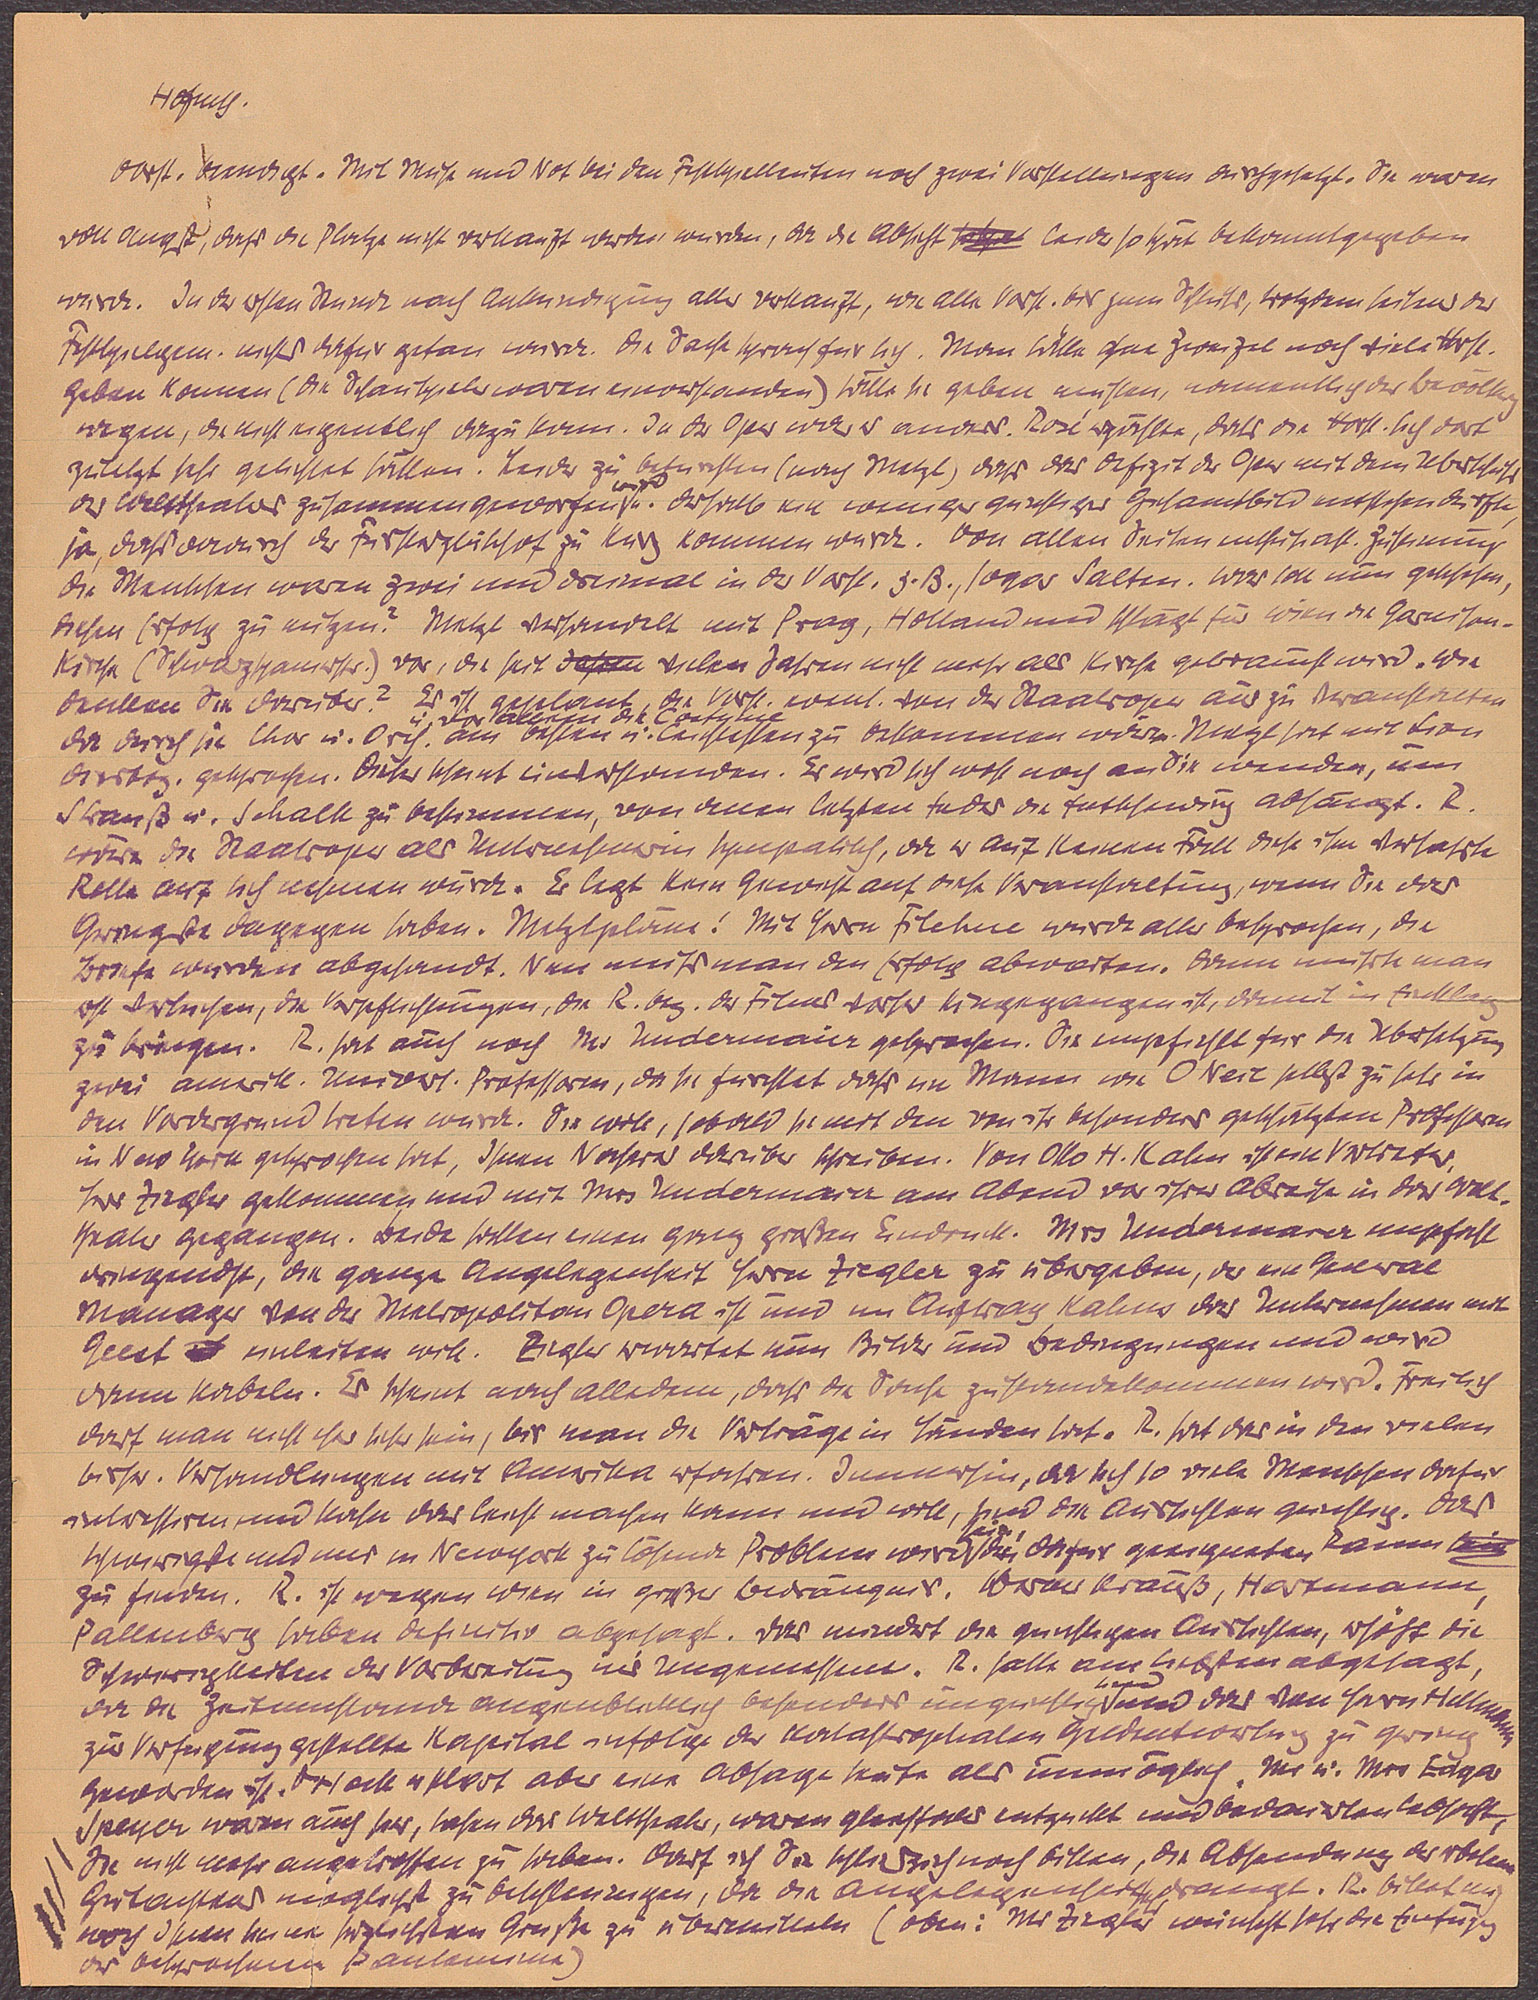 Hofmsth.
Vorst. beendigt. Mit Mühe und Not bei den Festspielleuten noch zwei Vorstellungen durchgesetzt. Sie waren
voll Angst, dass die Plätze nicht verkauft werden würden, da die Absicht leider so spät bekanntgegeben
wurde. In der ersten Stunde nach Ankündigung alles verkauft, wie alle Vorst. bis zum Schluss, trotzdem seitens der
Festspielgem. nichts dafür getan wurde. Die Sache sprach für sich. Man hätte ohne Zweifel noch viele Vorst.
geben können (die Schauspieler waren einverstanden) hätte sie geben müssen, namentlich der Bevölkerg
wegen, die nicht eigentlich dazu kam. In der Oper war es anders. Rosé erzählte, dass die Vorst. sich dort
zuletzt sehr gelichtet hätten. Leider zu befürchten (nach Metzl) dass das Defizit der Oper mit dem Überschuss
des Welttheaters zusammengeworfen wird. deshalb ein weniger günstiges Gesamtbild entstehen dürfte,
ja, dass dadurch der Fürsterzbischof zu kurz kommen würde. Von allen Seiten enthusiast. Zustimmung
die Menschen waren zwei und dreimal in der Vorst. z.B., sogar Salten. Was soll nun geschehen,
diesen Erfolg zu nützen? Metzl verhandelt mit Prag, Holland und schlägt für Wien die Garnison-
Kirche (Schwarzspanierstr.) vor, die seit vielen Jahren nicht mehr als Kirche gebraucht wird. Wie
denken Sie darüber? Es ist geplant, die Vorst. event. von der Staatsoper aus zu veranstalten
da durch sie Chor u. Orch. u. vor allem die Costüme am besten u. leichtesten zu bekommen wären. Metzl hat mit
gesprochen. Dieser scheint einverstanden. Er wird sich wohl noch an Sie wenden, um
Strauß u. Schalk zu bestimmen, von denen letzten Endes die Entscheidung abhängt. R.
wäre die Staatsoper als Unternehmerin sympathisch, da er auf keinen Fall diese ihm verhasste
Rolle auf sich nehmen würde. Er legt kein Gewicht auf diese Veranstaltung, wenn Sie das
Geringste dagegen haben. Metzlpläne! Mit Herrn Filehne wurde alles besprochen, die
Briefe wurden abgesandt. Nun muss man den Erfolg abwarten. Dann müsste man
erst versuchen, die Verpflichtungen, die R. bez. des Films vorher eingegangen ist, damit in Einklang
zu bringen. R. hat auch noch Mrs Undermaier gesprochen. Sie empfiehlt für die Übersetzung
zwei amerik. Univers. Professoren, da sie fürchtet dass ein Mann wie O Neil selbst zu sehr in
den Vordergrund treten würde. Sie will, sobald sie mit den von ihr besonders geschätzten Professoren
in New York gesprochen hat, Ihnen Näheres darüber schreiben. Von Otto H. Kahn ist ein Vertreter,
Herr Ziegler gekommen und mit Mrs Undermaier am Abend vor ihrer Abreise in das Welt-
theater gegangen. Beide hatten einen ganz großen Eindruck. Mrs Undermaier empfiehlt
dringendst, die ganze Angelegenheit Herrn Ziegler zu übergeben, der ein General
Manager von der Metropolitan Opera ist und im Auftrag Kahns das Unternehmen mit
Geest einleiten will. Ziegler erwartet nun Bilder und Bedingungen und wird
dann kabeln. Es scheint nach alledem, dass die Sache zustandekommen wird. Freilich
darf man nicht eher sicher sein, bis man die Verträge in Händen hat. R. hat das in den vielen
bisher. Verhandlungen mit Amerika erfahren. Immerhin, da sich so viele Menschen dafür
interessieren und Kahn das leicht machen kann und will, sind die Aussichten günstig. Das
schwierigste und nur in Newyork zu lösende Problem wird sein, den dafür geeigneten Raum
zu finden. R. ist wegen Wien in großer Bedrängnis. Werner Krauß, Hartmann,
Pallenberg haben definitiv abgesagt. Das mindert die günstigen Aussichten, erhöht die
Schwierigkeiten der Vorbereitung ins Ungemessene. R. hätte am liebsten abgesagt,
da die Zeitumstände augenblicklich besonders ungünstig sind und das von Herrn Hellmann
zur Verfügung gestellte Kapital infolge der katastrophalen Geldentwertung zu gering
geworden ist. erklärt aber eine Absage heute als unmöglich. Mr u. Mrs Edgar
Speyer waren auch hier, sahen das Welttheater, waren gleichfalls entzückt und bedauerten lebhaft,
Sie nicht mehr angetroffen zu haben. Darf ich Sie schliesslich noch bitten, die Absendung des
Gutachtens möglichst zu beschleunigen, da die Angelegenheit drängt. R. bittet mich
noch Ihnen seine herzlichsten Grüße zu übermitteln (oben: Mr Ziegler wünscht sehr die Einfügung
der besprochenen Pantomime)